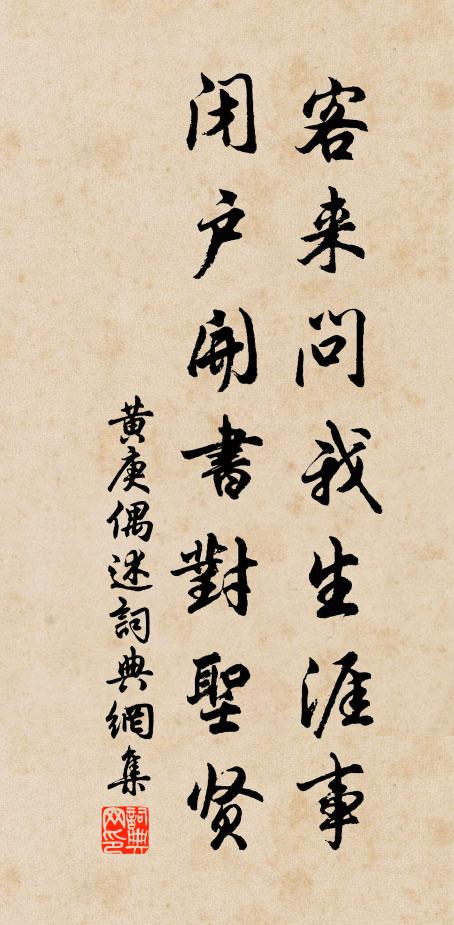 客来問我生涯事
闭户開書對聖贤
黄庚偶述詞典網集
詞典網印